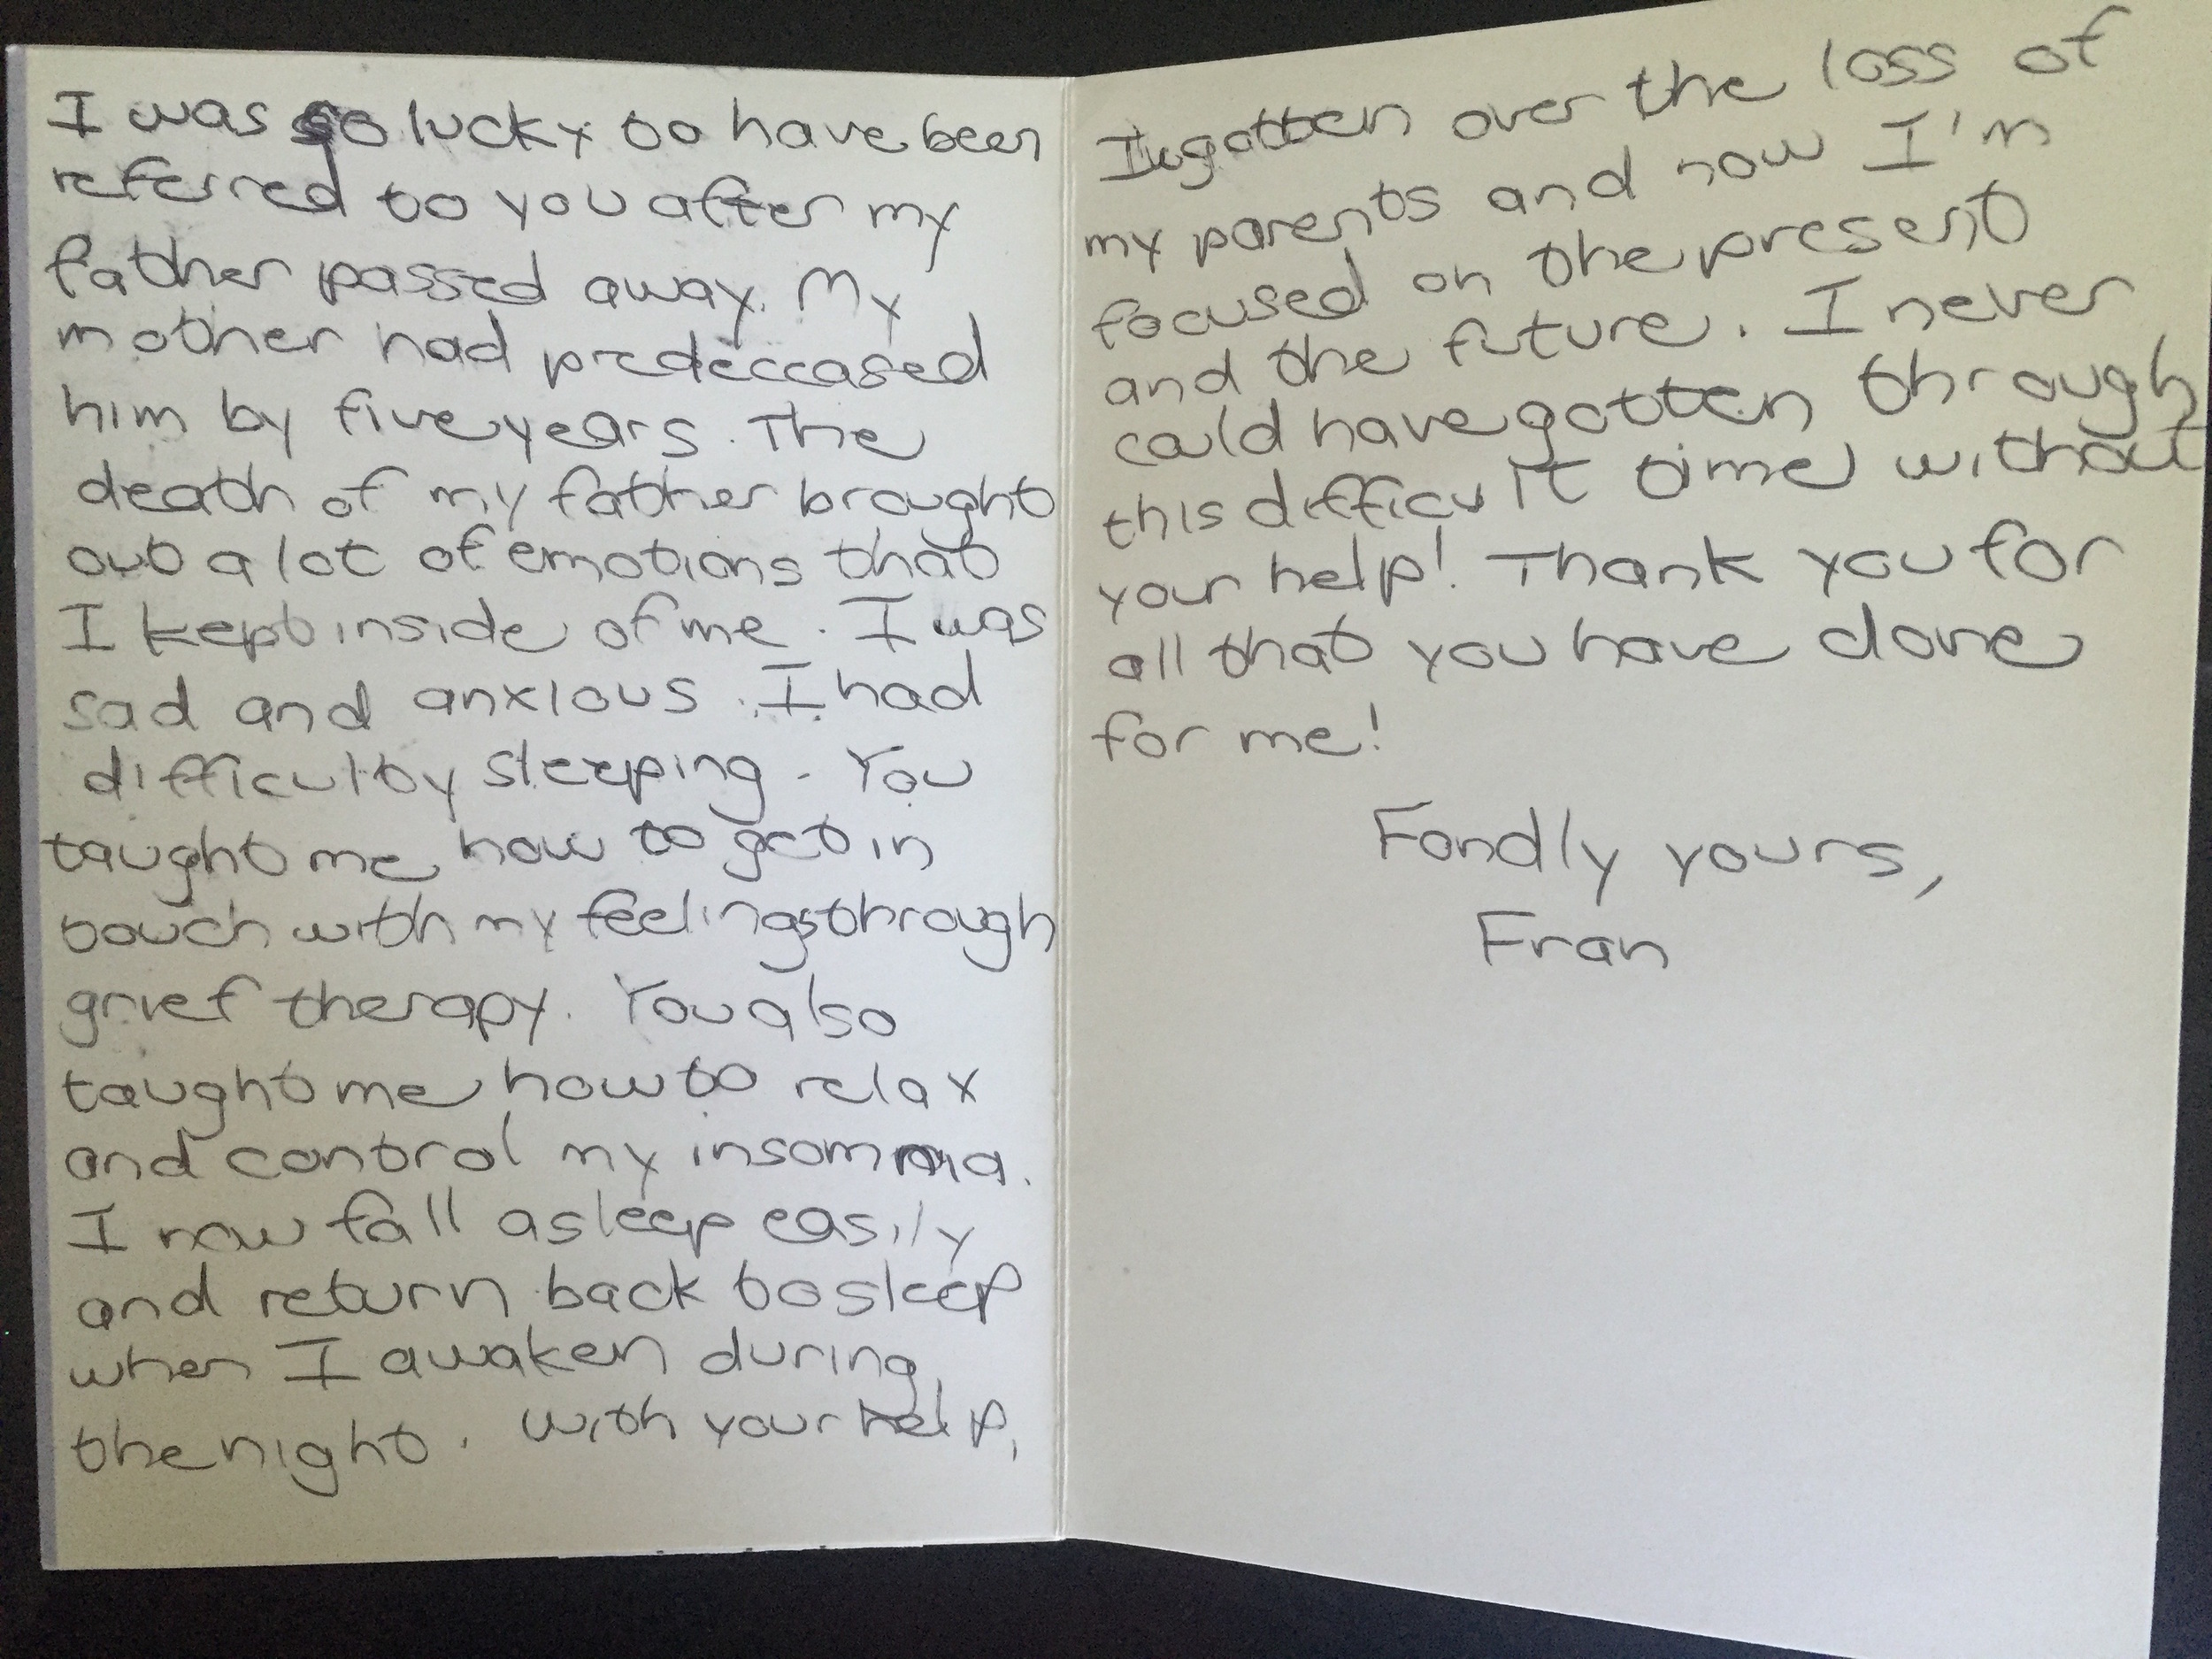 I was so lucky to have been
referred to you after my
father passed away. My
mother had predeceased
him by five years. The
death of my father brought
out a lot of emotions that
I kept inside of me. I was
sad and anxious. I had
difficulty sleeping. You
taught me how to get in
touch with my feelings through
grief therapy. You also
taught me how to relax
and control my insomnia.
I now fall asleep easily
and return back to sleep
when I awaken during
the night. With your help,
gotten over the loss of
my parents and now I'm
focused on the present
and the future. I never
could have gotten through
this difficult time without
your help! Thank you for
all that you have done
for me!
Fondly yours,
Fran